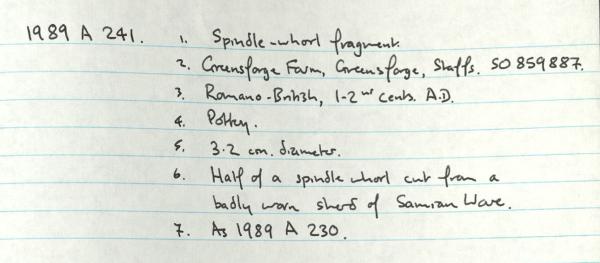 1989 A 241. 1. Spindle-whorl fragment.
2. Greensforge Farm, Greensforge, Staffs. SO 859887.
3. Romano-British, 1-2nd cents. A.D.
4. Pottery.
5. 3.2 cm. diameter.
6. Half of a spindle whorl cut from a
badly worn sherd of Samian Ware.
7. As 1989 A 230.